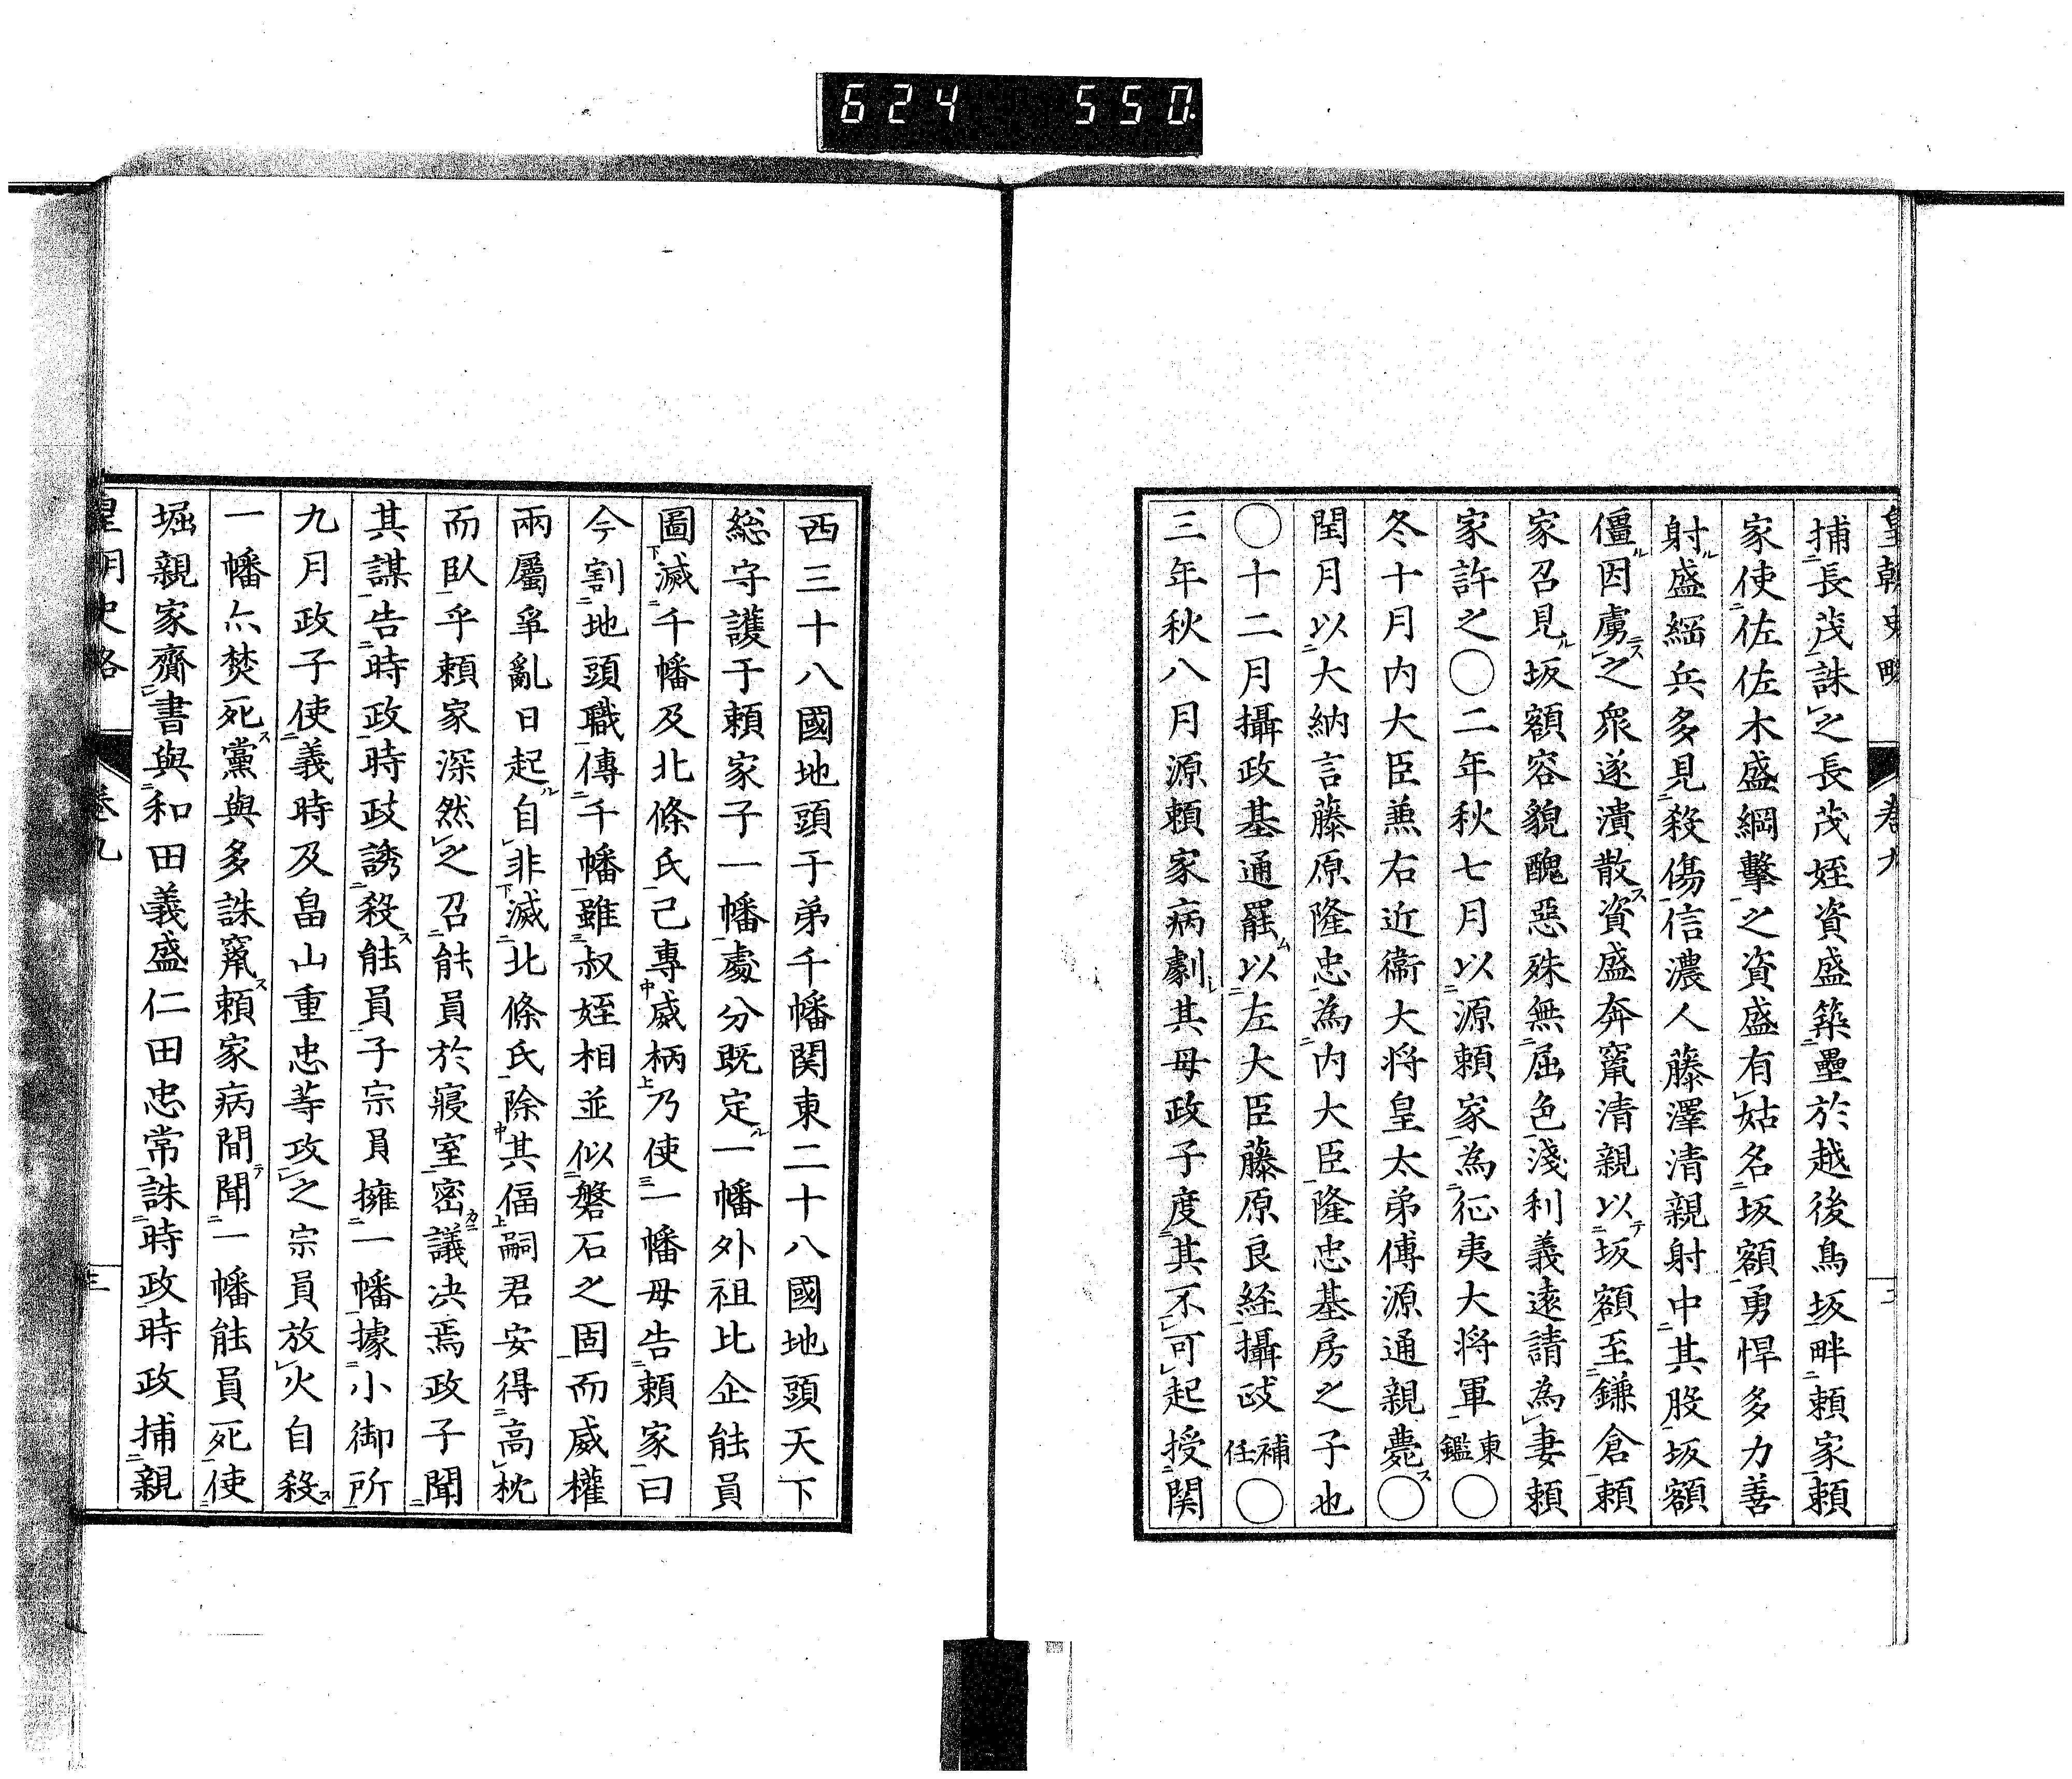 624 550
皇朝史略 卷九
捕長茂誅之長茂姪資盛築壘於越後鳥坂畔賴家賴
家使佐佐木盛綱擊之資盛有姑名坂額勇悍多力善
射盛綱兵多見殺傷信濃人藤澤清親射中其股坂額
僵因虜之眾遂潰散資盛奔竄清親以坂額至鎌倉賴
家召見坂額容貌醜惡殊無屈色淺利義遠請為妻賴
家許之〇二年秋七月以源賴家為征夷大将軍東鑑〇
冬十月内大臣兼右近衞大将皇太弟傅源通親薨〇
閏月以大納言藤原隆忠為内大臣隆忠基房之子也
〇十二月攝政基通罷以左大臣藤原良経攝政補任〇
三年秋八月源賴家病劇其母政子度其不可起授関
西三十八國地頭于弟千幡関東二十八國地頭天下
総守護于賴家子一幡處分既定一幡外祖比企能員
圖滅千幡及北條氏己專威柄乃使一幡母告賴家曰
今割地頭職傳千幡雖叔姪相並似磐石之固而威權
兩屬爭亂日起自非滅北條氏除其偪嗣君安得高枕
而臥乎賴家深然之召能員於寢室密議決焉政子聞
其謀告時政時政誘殺能員子宗員擁一幡據小御所
九月政子使義時及畠山重忠等攻之宗員放火自殺
一幡亦焚死黨與多誅竄賴家病間聞一幡能員死使
堀親家齎書與和田義盛仁田忠常誅時政時政捕親
皇朝史略 卷九 三